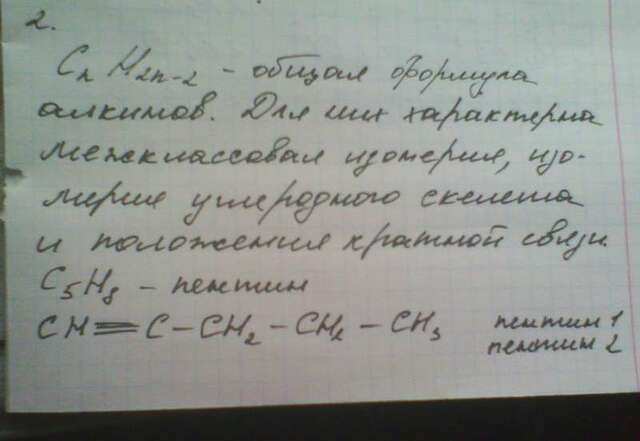 2.
CnH2n-2 - общая формула
алкинов. Для них характерна
межклассовая изомерия, изо-
мерия углеродного скелета
и положения кратной связи
C5H8 - пентин
CH≡C-CH2-CH2-CH3 пентин 1
пентин 2